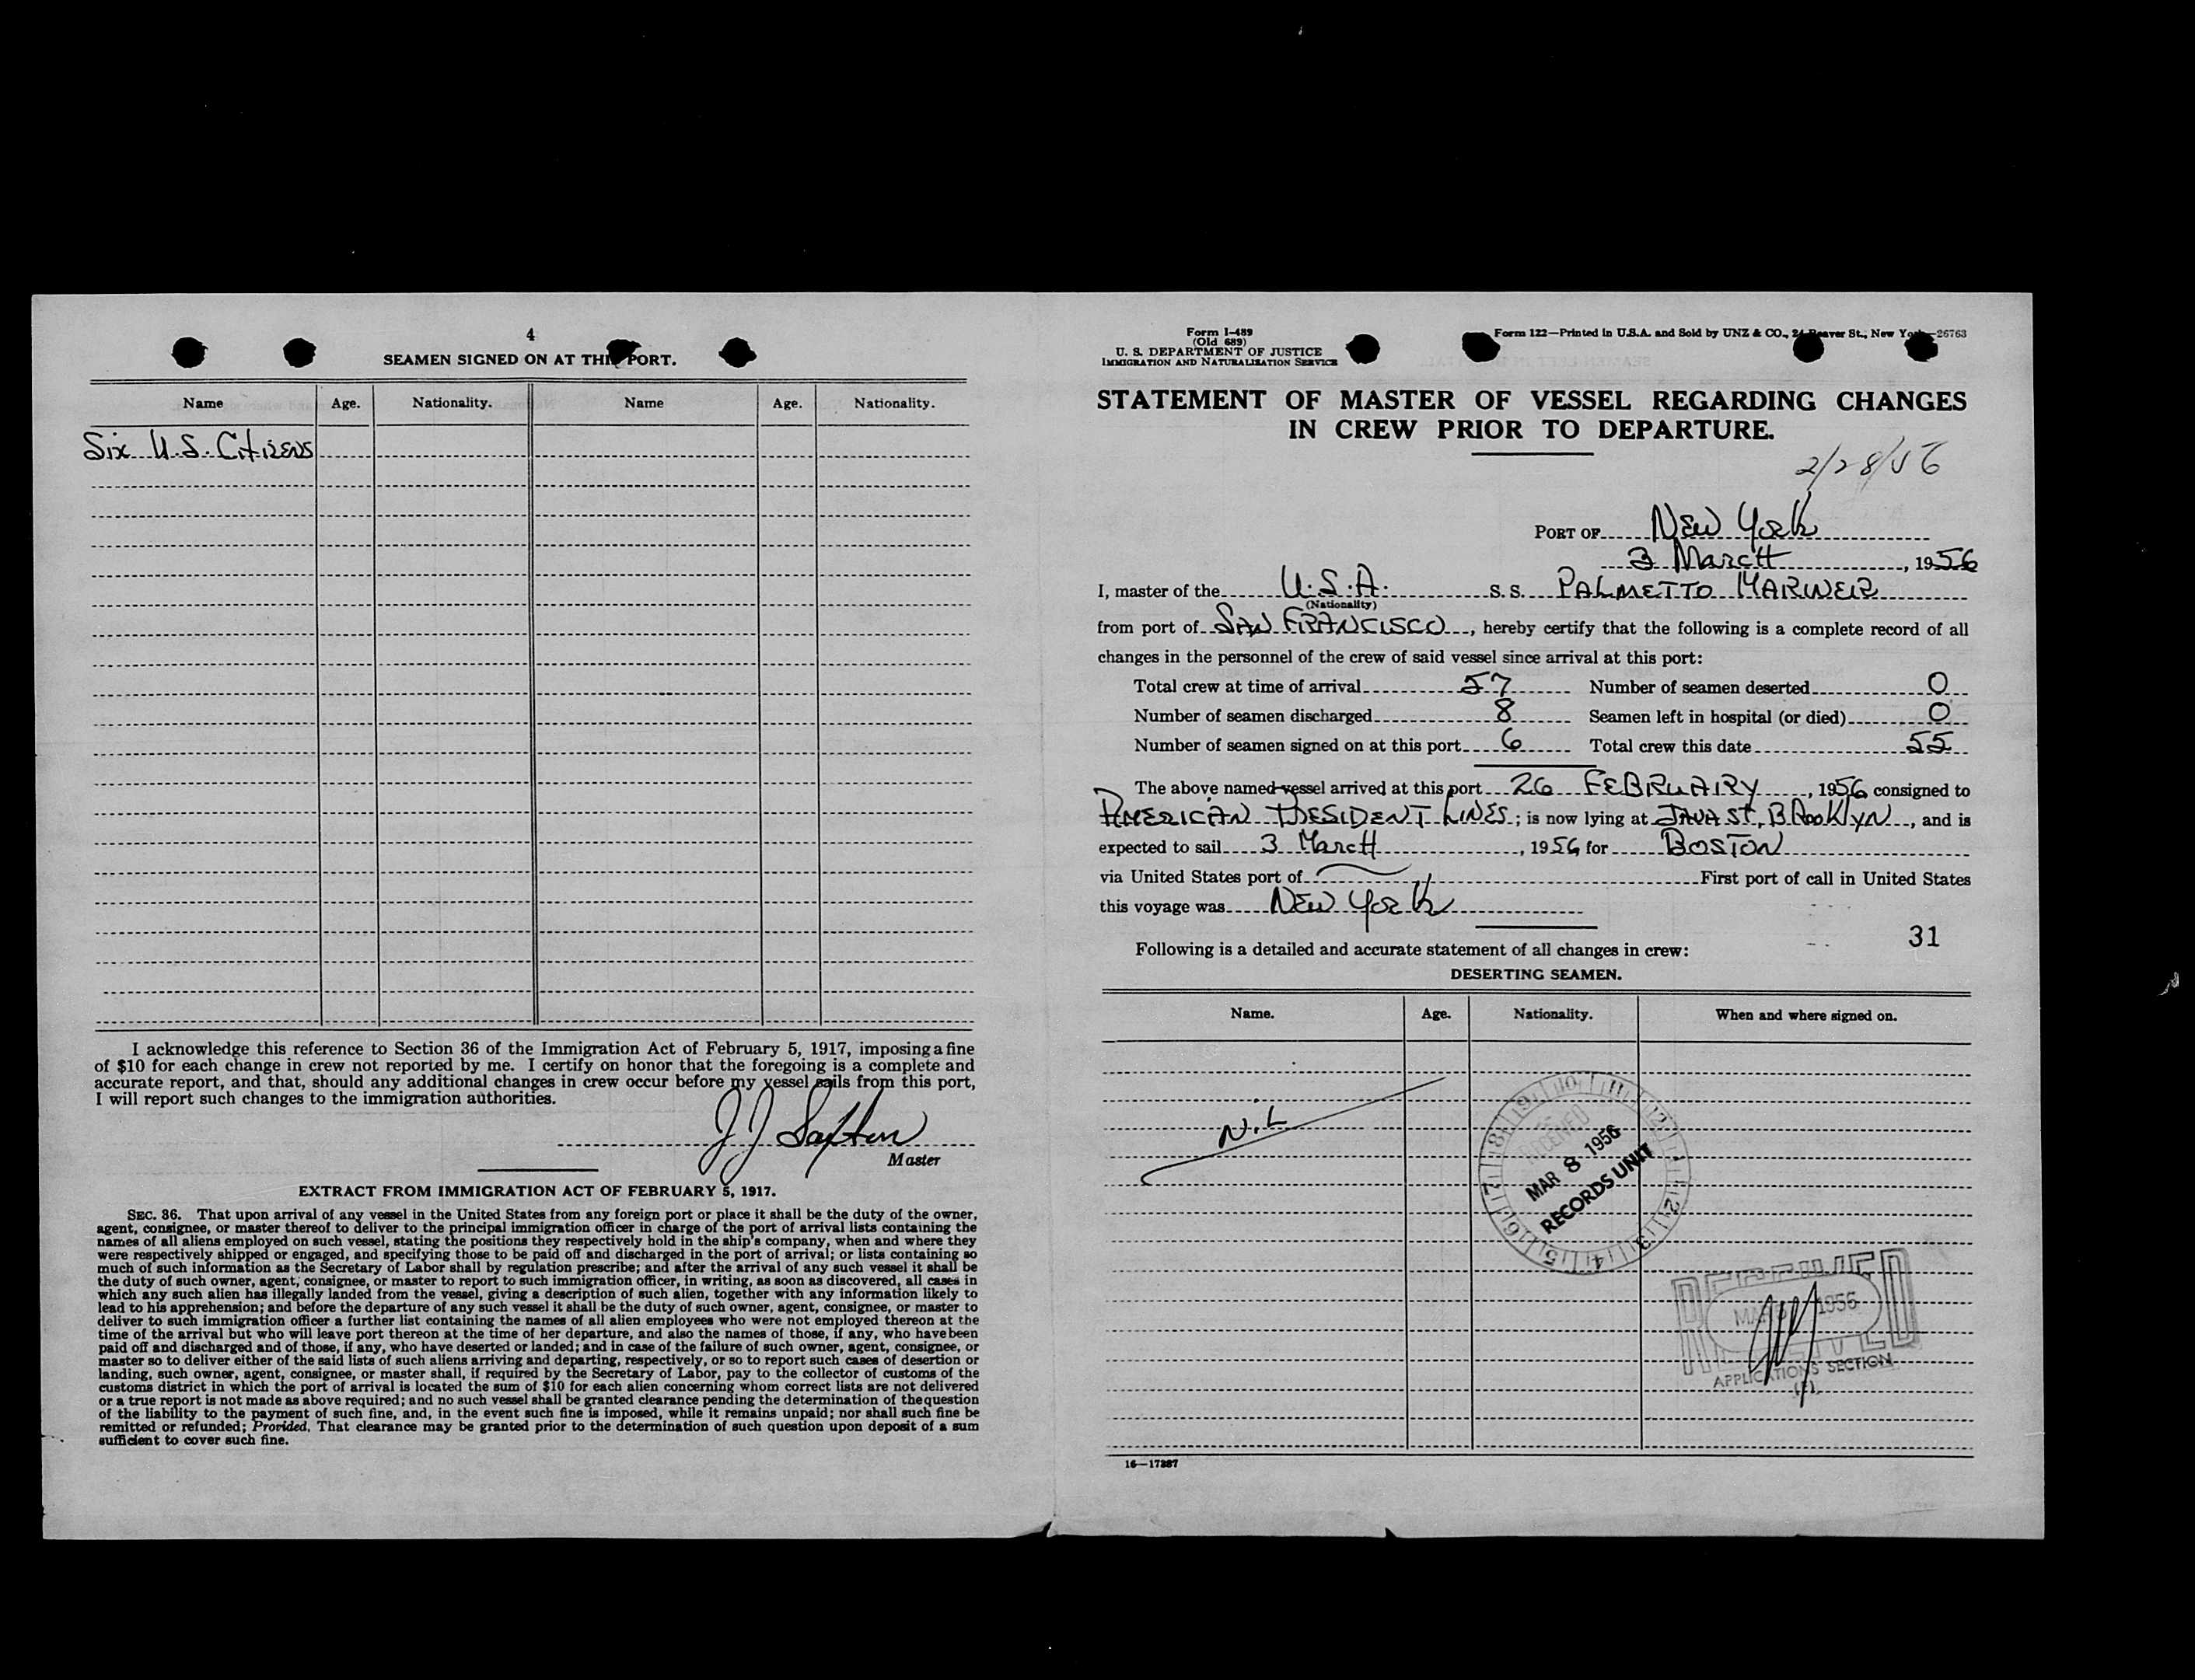 4
SEAMEN SIGNED ON AT THIS PORT.
Name Age. Nationality. Name Age. Nationality.
Six U.S. Citizens
I acknowledge this reference to Section 36 of the Immigration Act of February 5, 1917, imposing a fine
of $10 for each change in crew not reported by me. I certify on honor that the foregoing is a complete and
accurate report, and that, should any additional changes in crew occur before my vessel sails from this port,
I will report such changes to the immigration authorities.
J J
Master
EXTRACT FROM IMMIGRATION ACT OF FEBRUARY 5, 1917.
SEC. 36. That upon arrival of any vessel in the United States from any foreign port or place it shall be the duty of the owner,
agent, consignee, or master thereof to deliver to the principal immigration officer in charge of the port of arrival lists containing the
names of all aliens employed on such vessel, stating the positions they respectively hold in the ship's company, when and where they
were respectively shipped or engaged, and specifying those to be paid off and discharged in the port of arrival; or lists containing so
much of such information as the Secretary of Labor shall by regulation prescribe; and after the arrival of any such vessel it shall be
the duty of such owner, agent, consignee, or master to report to such immigration officer, in writing, as soon as discovered, all cases in
which any such alien has illegally landed from the vessel, giving a description of such alien, together with any information likely to
lead to his apprehension; and before the departure of any such vessel it shall be the duty of such owner, agent, consignee, or master to
deliver to such immigration officer a further list containing the names of all alien employees who were not employed thereon at the
time of the arrival but who will leave port thereon at the time of her departure, and also the names of those, if any, who have been
paid off and discharged and of those, if any, who have deserted or landed; and in case of the failure of such owner, agent, consignee, or
master so to deliver either of the said lists of such aliens arriving and departing, respectively, or so to report such cases of desertion or
landing, such owner, agent, consignee, or master shall, if required by the Secretary of Labor, pay to the collector of customs of the
customs district in which the port of arrival is located the sum of $10 for each alien concerning whom correct lists are not delivered
or a true report is not made as above required; and no such vessel shall be granted clearance pending the determination of the question
of the liability to the payment of such fine, and, in the event such fine is imposed, while it remains unpaid; nor shall such fine be
remitted or refunded; Provided, That clearance may be granted prior to the determination of such question upon deposit of a sum
sufficient to cover such fine.
Form I-489
(Old 689)
U. S. DEPARTMENT OF JUSTICE
IMMIGRATION AND NATURALIZATION SERVICE
Form 122—Printed in U.S.A. and Sold by UNZ & CO., 24 Beaver St., New York—26763
STATEMENT OF MASTER OF VESSEL REGARDING CHANGES
IN CREW PRIOR TO DEPARTURE.
2/28/56
PORT OF New York
3 March, 1956
I, master of the U.S.A. S. S. PALMETTO MARINER
(Nationality)
from port of SAN FRANCISCO, hereby certify that the following is a complete record of all
changes in the personnel of the crew of said vessel since arrival at this port:
Total crew at time of arrival 57 Number of seamen deserted 0
Number of seamen discharged 8 Seamen left in hospital (or died) 0
Number of seamen signed on at this port 6 Total crew this date 55
The above named vessel arrived at this port 26 FEBRUARY, 1956 consigned to
AMERICAN PRESIDENT LINES; is now lying at JAVA ST, BROOKLYN, and is
expected to sail 3 March, 1956 for BOSTON
via United States port of First port of call in United States
this voyage was New York
31
Following is a detailed and accurate statement of all changes in crew:
DESERTING SEAMEN.
Name. Age. Nationality. When and where signed on.
NiL
10 11 12 1 2 3 4 5 6 7 8 9
RECEIVED
MAR 8 1956
RECORDS UNIT
RECEIVED
MAR 1956
APPLICATIONS SECTION
16—17387